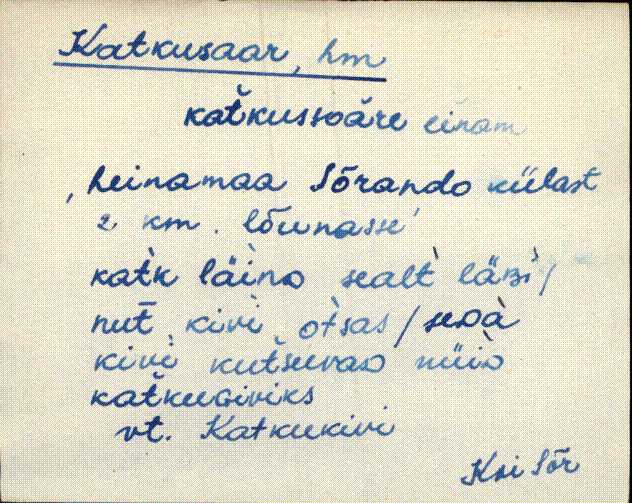 Katkusaar, hm
katkussoäre einam
, heinamaa Sõrando külast
2 km. lõunasse'
katk läino sealt läbi /
nut kivi otsas / seda
kivi kutsuvao nüio
katkuGiviks
vt. Katkukivi
Koi Sõr